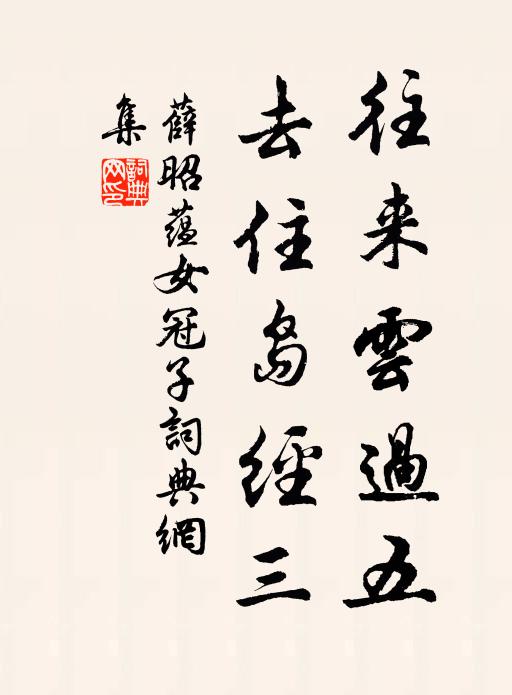 往来雲過五
去住島經三
薛昭蘊女冠子詞典網
集
詞典網印